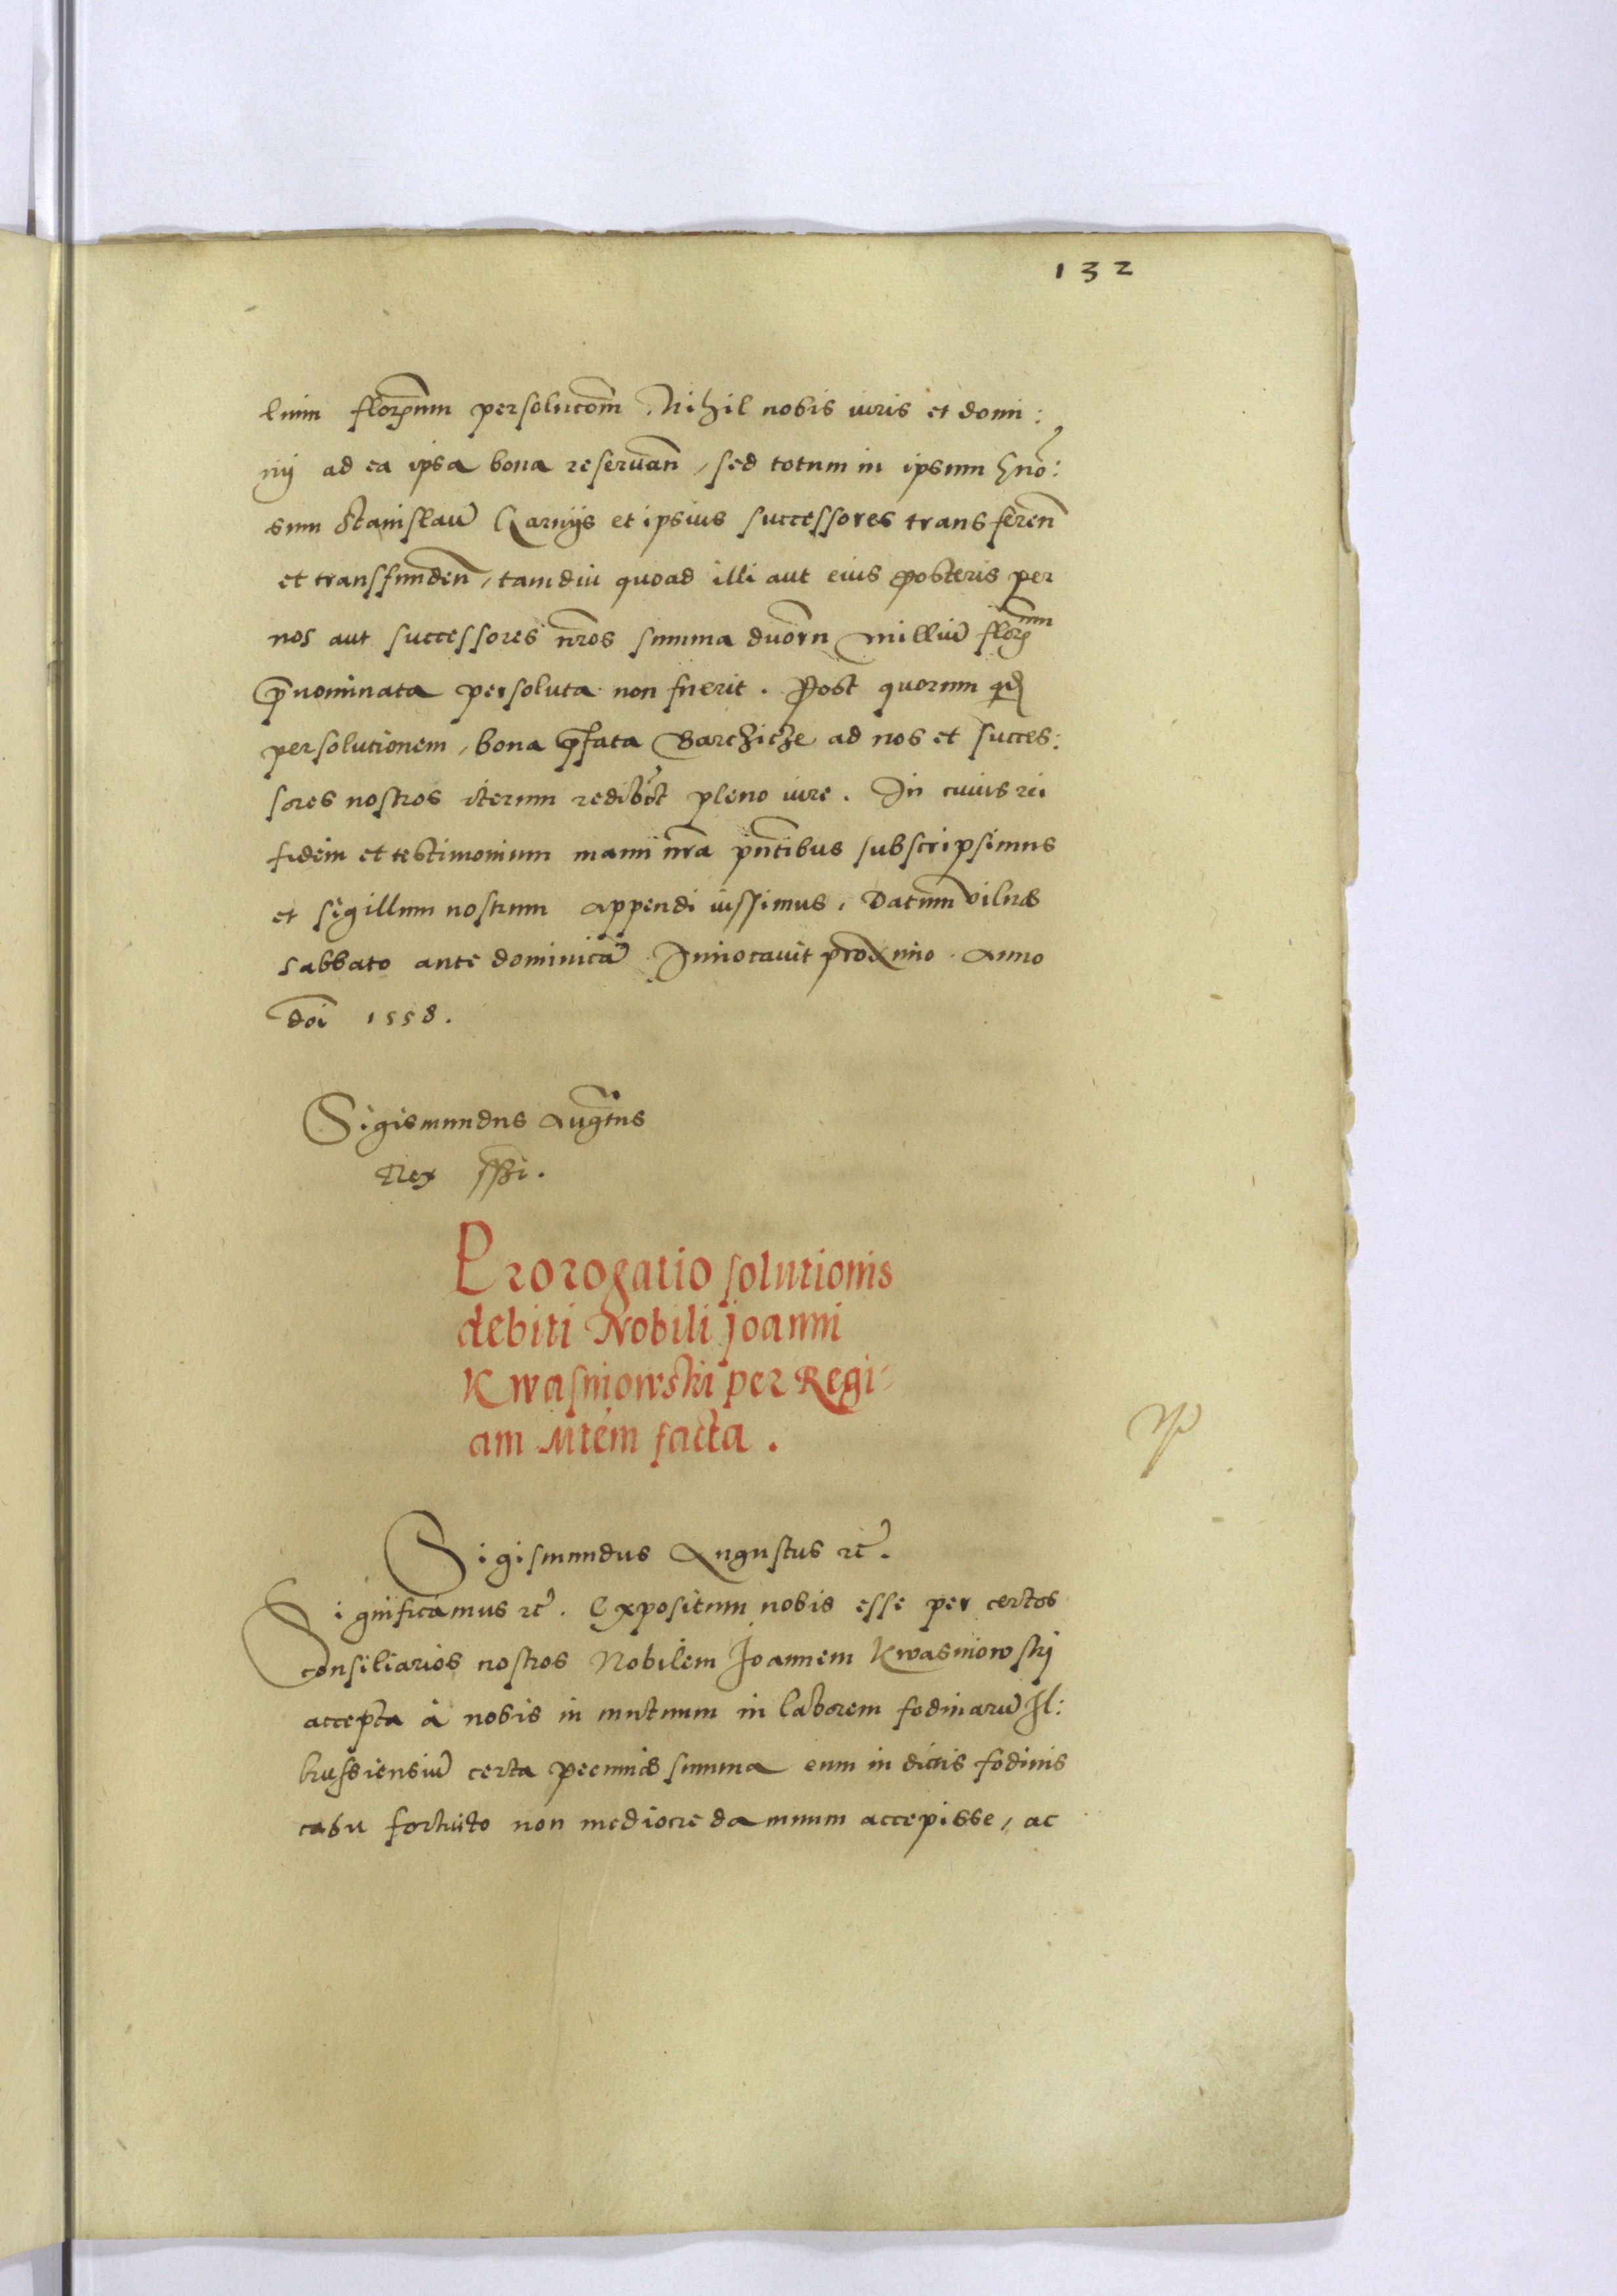 132
lium florenum persolucōm Nihil nobis iuris et domi:
nij ad ea ipsa bona reservan̄, sed totum in ipsum Gn̄o:
sum Stanislaū Karnijs et ipsius successores transferen̄
et transfunden̄, tamdiu quoad illi aut eius posteris per
nos aut successores nr̄os summa duorū milliū floren̄um
p̄nominata persoluta non fuerit. Post quorum quid̄
persolutionem, bona p̄fata Barchicze ad nos et succes:
sores nostros iterum redibūt pleno iure. In cuius rei
fidem et testimonium manu nr̄a pn̄tibus subscripsimus
et sigillum nostrum appendi iussimus. Datum vilnæ
sabbato ante dominicā Invocavit proximo. Anno
doi 1558.
Sigismundus Augtus
Rex sspt.
Prorogatio solutionis
debiti Nobili Joanni
Kwasniowski per Regi-
am Mtem facta.
Sigismundus Augustus rc̄.
Significamus rc̄. Expositum nobis esse per certos
consiliarios nostros Nobilem Joannem Kwasniowskj
accepta à nobis in mutuum in laborem fodinarū Il:
kussiensiū certa pecuniæ summa eum in dictis fodinis
casu fortuito non mediocre damnum accepisse, ac